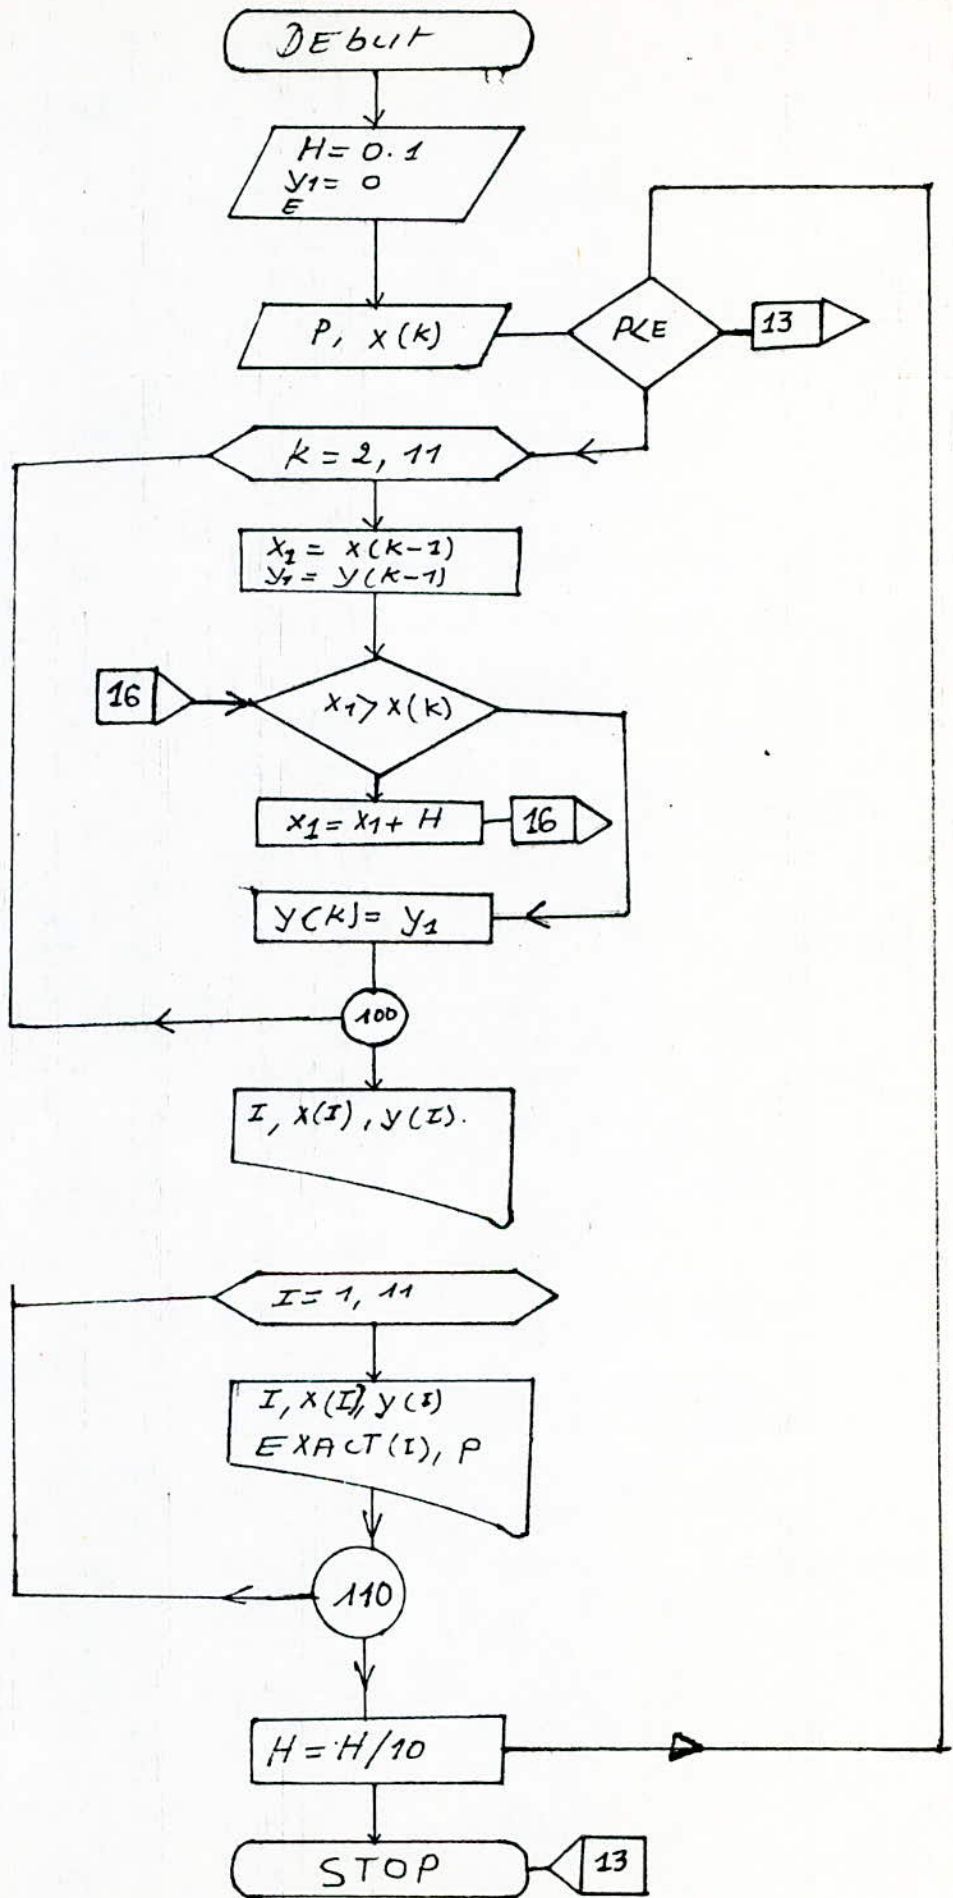 DEbut
H = 0.1
y1 = 0
E
P, x(k)
P<E
13
k = 2, 11
x1 = x(k-1)
y1 = y(k-1)
16
x1 > x(k)
x1 = x1 + H
16
y(k) = y1
100
I, x(I), y(I).
I = 1, 11
I, x(I), y(I)
EXACT(I), P
110
H = H/10
STOP
13